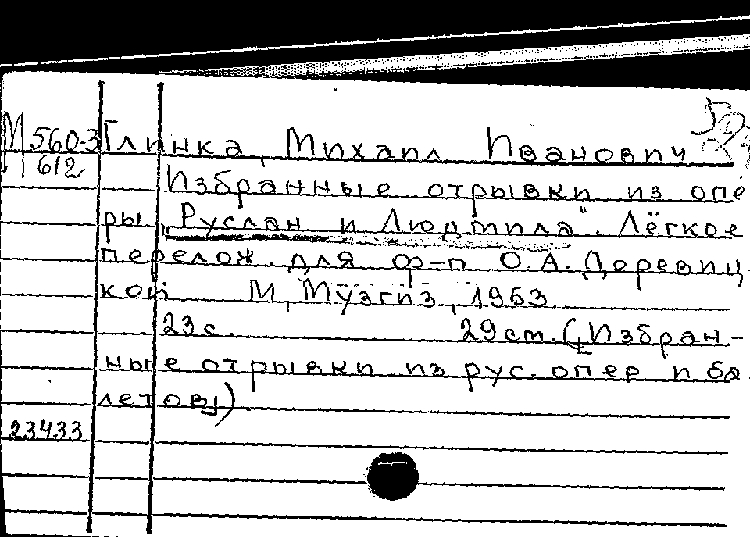 М 560-3 Глинка, Михаил Иванович
612
Избранные отрывки из опе
ры "Руслан и Людмила". Лёгкое
перелож. для ф-п О.А. Доревиц
кой М, Музгиз, 1953
23 с. 29 cm. (Избран-
ные отрывки из рус. опер и ба
летов)
23433